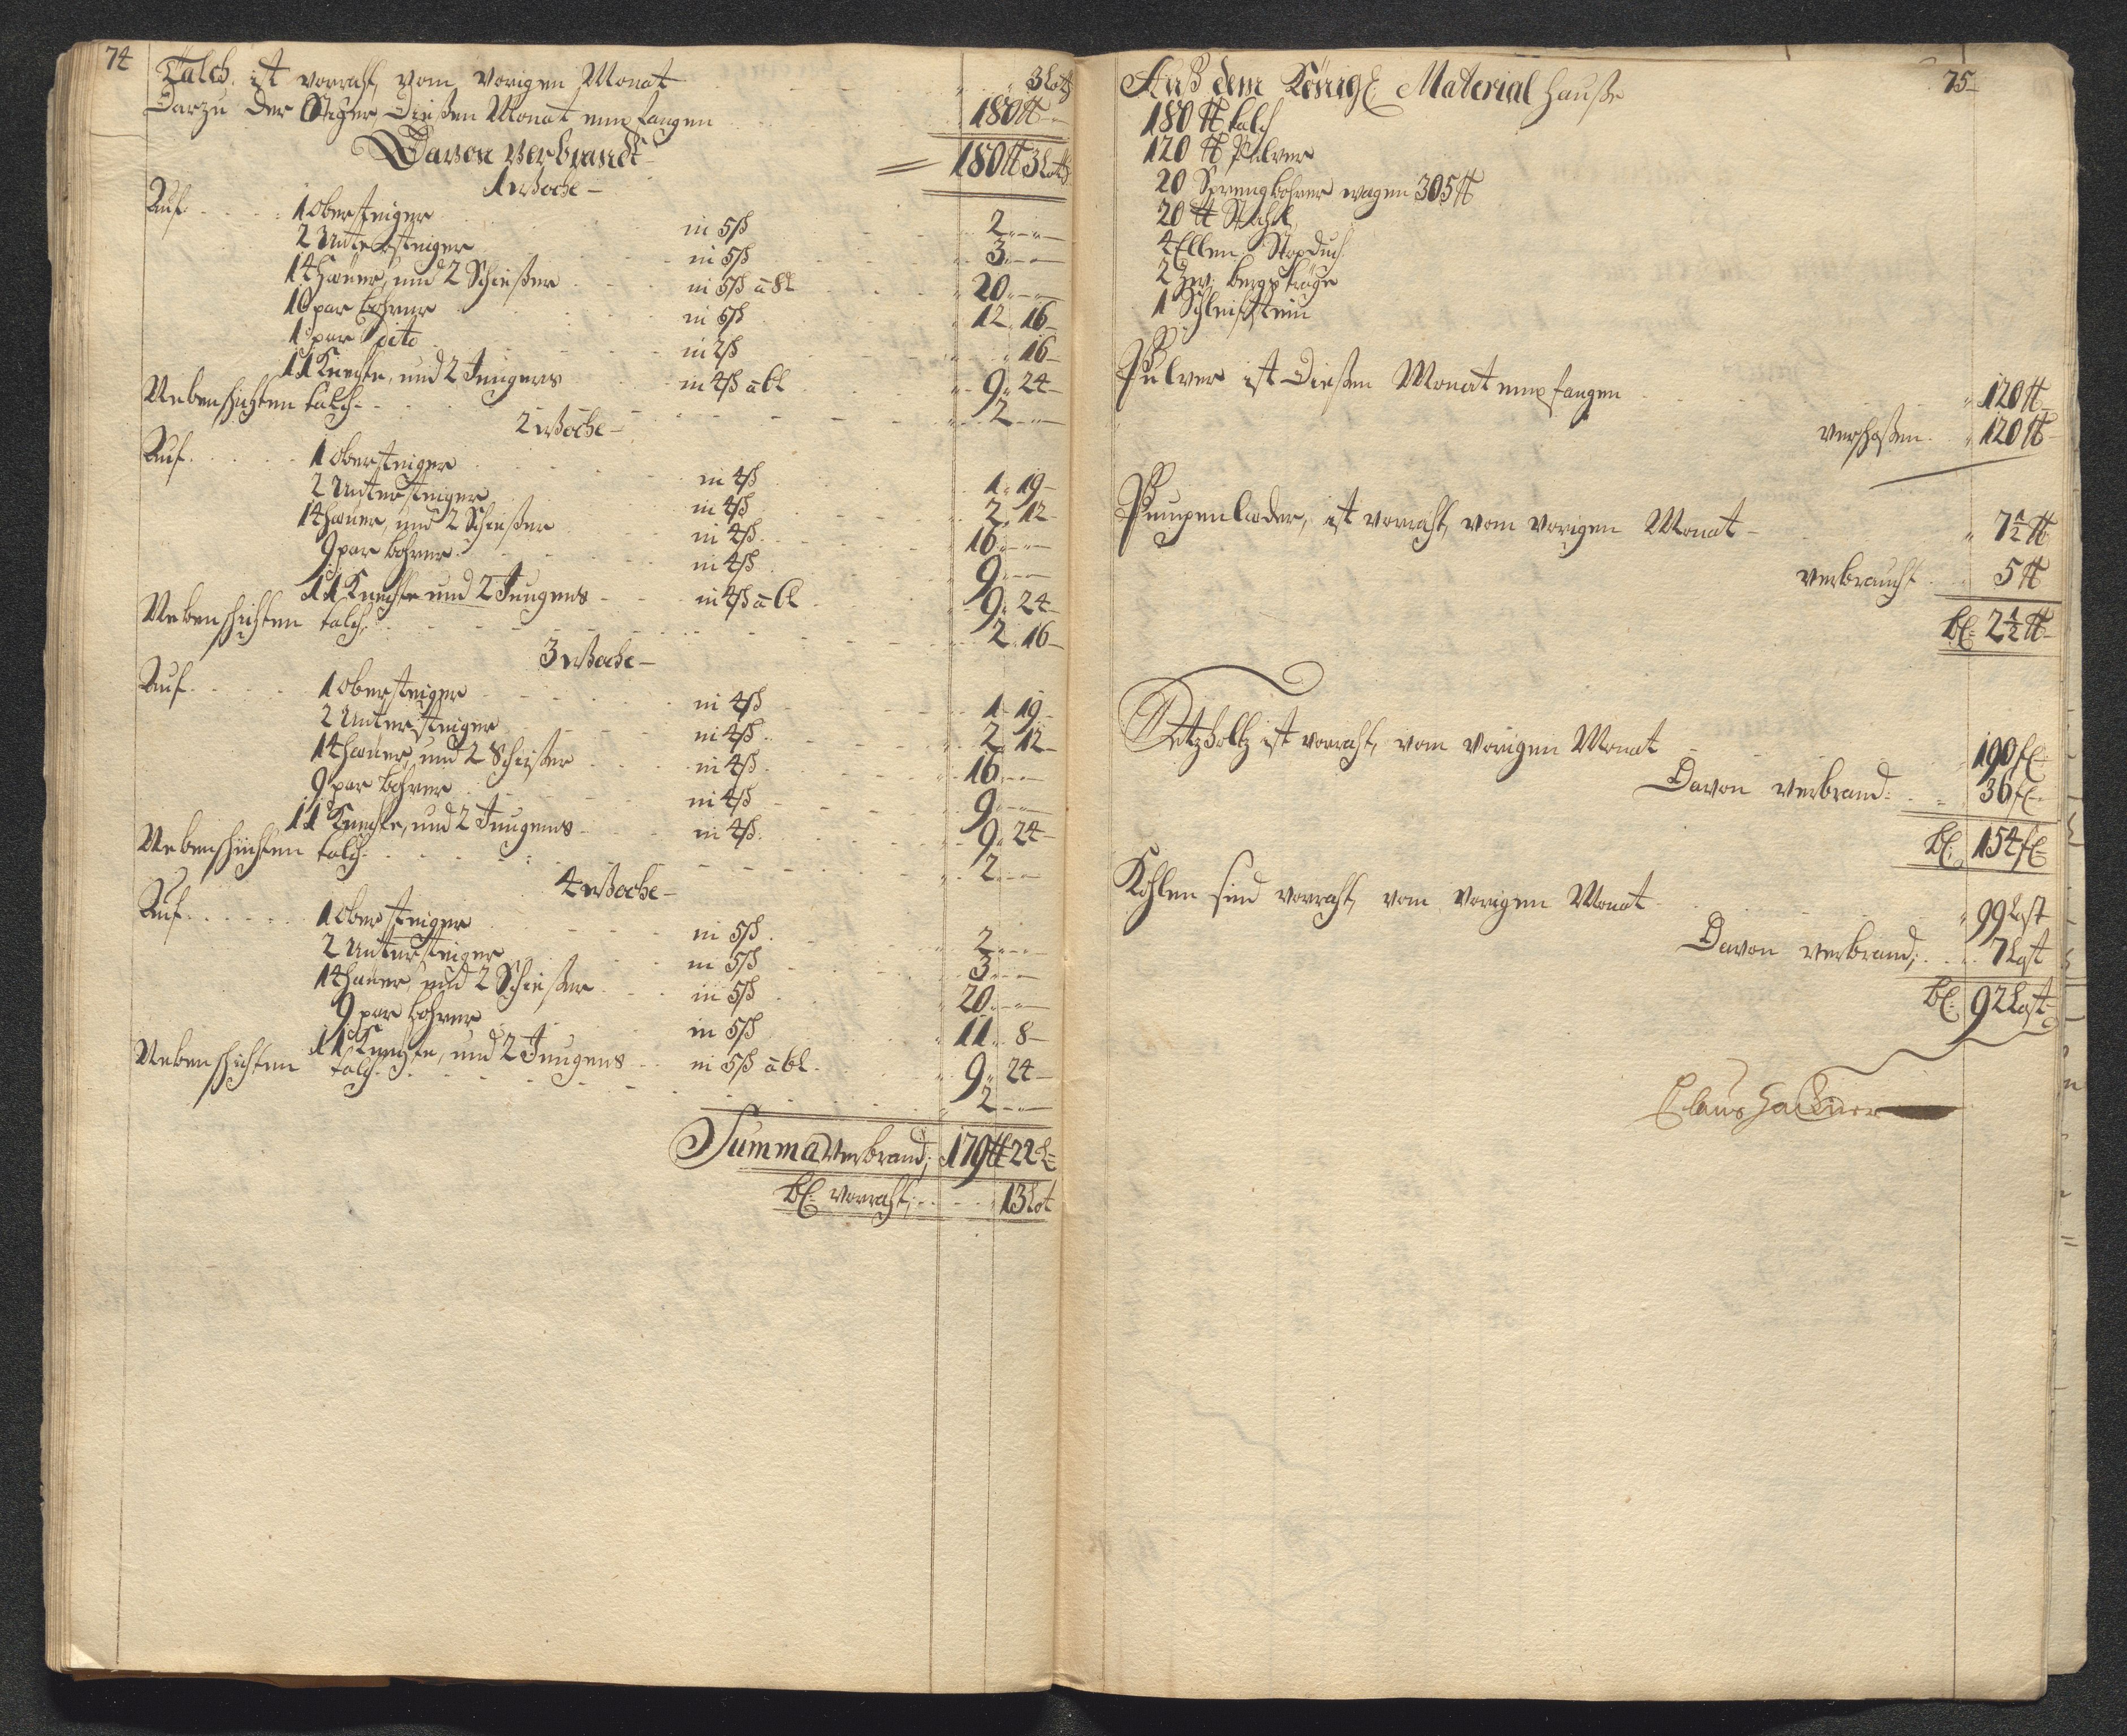 74
Talch ist vorraht, vom vorigen Monat 3 Loth
Darzu der Steiger Dießen Monat empfangen 180 ℔
Davon verbrandt 180 ℔ 3 Loth
1 Woche
Auf 1 obersteiger in 5ß 2
2 Untersteiger in 5ß 3
14 hauer, und 2 Schießer in 5ß a 8l 20
10 par bohrer in 5ß 12 16
1 par dito in 2ß 16
11 Knechte, und 2 Jungens in 4ß a 6l 9 24
Nebenschichten talch 2
2 Woche
Auf 1 obersteiger in 4ß 1 19
2 Untersteiger in 4ß 2 12
14 hauer, und 2 Schießer in 4ß 16
9 par bohrer in 4ß 9
11 Knechte und 2 Jungens in 4ß a 6l 9 24
Nebenschichten talch 2 16
3 Woche
Auf 1 obersteiger in 4ß 1 19
2 Untersteiger in 4ß 2 12
14 hauer, und 2 Schießer in 4ß 16
9 par bohrer in 4ß 9
11 Knechte, und 2 Jungens in 4ß 9 24
Nebenschichten talch 2
4 Woche
Auf 1 obersteiger in 5ß 2
2 Untersteiger in 5ß 3
14 hauer, und 2 Schießer in 5ß 20
9 par bohrer in 5ß 11 8
11 Knechte, und 2 Jungens in 5ß a 6l 9 24
Nebenschichten talch 2
Summa verbrand; 179 ℔ 22 L
bl: vorraht; 13 Lot
75
Auß dem Königl Material hauße
180 ℔ talch
120 ℔ Pulver
20 Sprengbohrer wagen 305 ℔
20 ℔ Stahl
4 Ellen Stopduch
2 bergtröge
1 Schleifstein
Pulver ist Dießen Monat empfangen 120 ℔
verschoßen 120 ℔
Pumpenleder, ist vorraht, vom vorigen Monat 7½ ℔
verbraucht 5 ℔
bl: 2½ ℔
Setzholtz ist vorraht, vom vorigen Monat 190 fl
Davon verbrand: 36 fl
bl: 154 fl
Kohlen sind vorraht, vom vorigen Monat 99 Last
Davon verbrand; 7 Last
bl: 92 Last
Claus